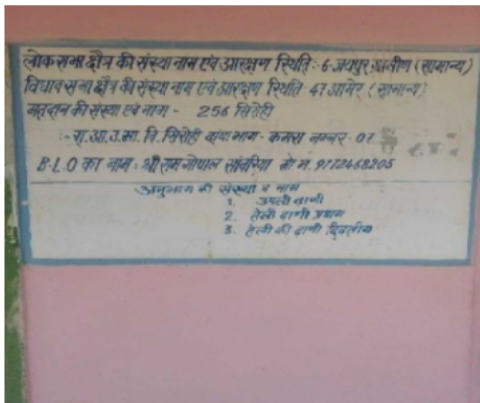 लोक सभा क्षैत्र की संख्या नाम एवं आरक्षण स्थिति :- 6 जयपुर ग्रामीण (सामान्य)
विधान सभा क्षैत्र की संख्या नाम एवं आरक्षण स्थिति 47 आमेर (सामान्य)
मतदान की संख्या एवं नाम - 256 सिरोही
:- रा.आ.उ.मा. वि. सिरोही बांया भाग - कमरा नम्बर - 07
B.L.O का नाम :- श्री राम गोपाल सांवरिया मो न. 9172468205
अनुभाग की संख्या व नाम
1. ढाणी
2. तेली ढाणी प्रथम
3. तेली की ढाणी द्वितीय